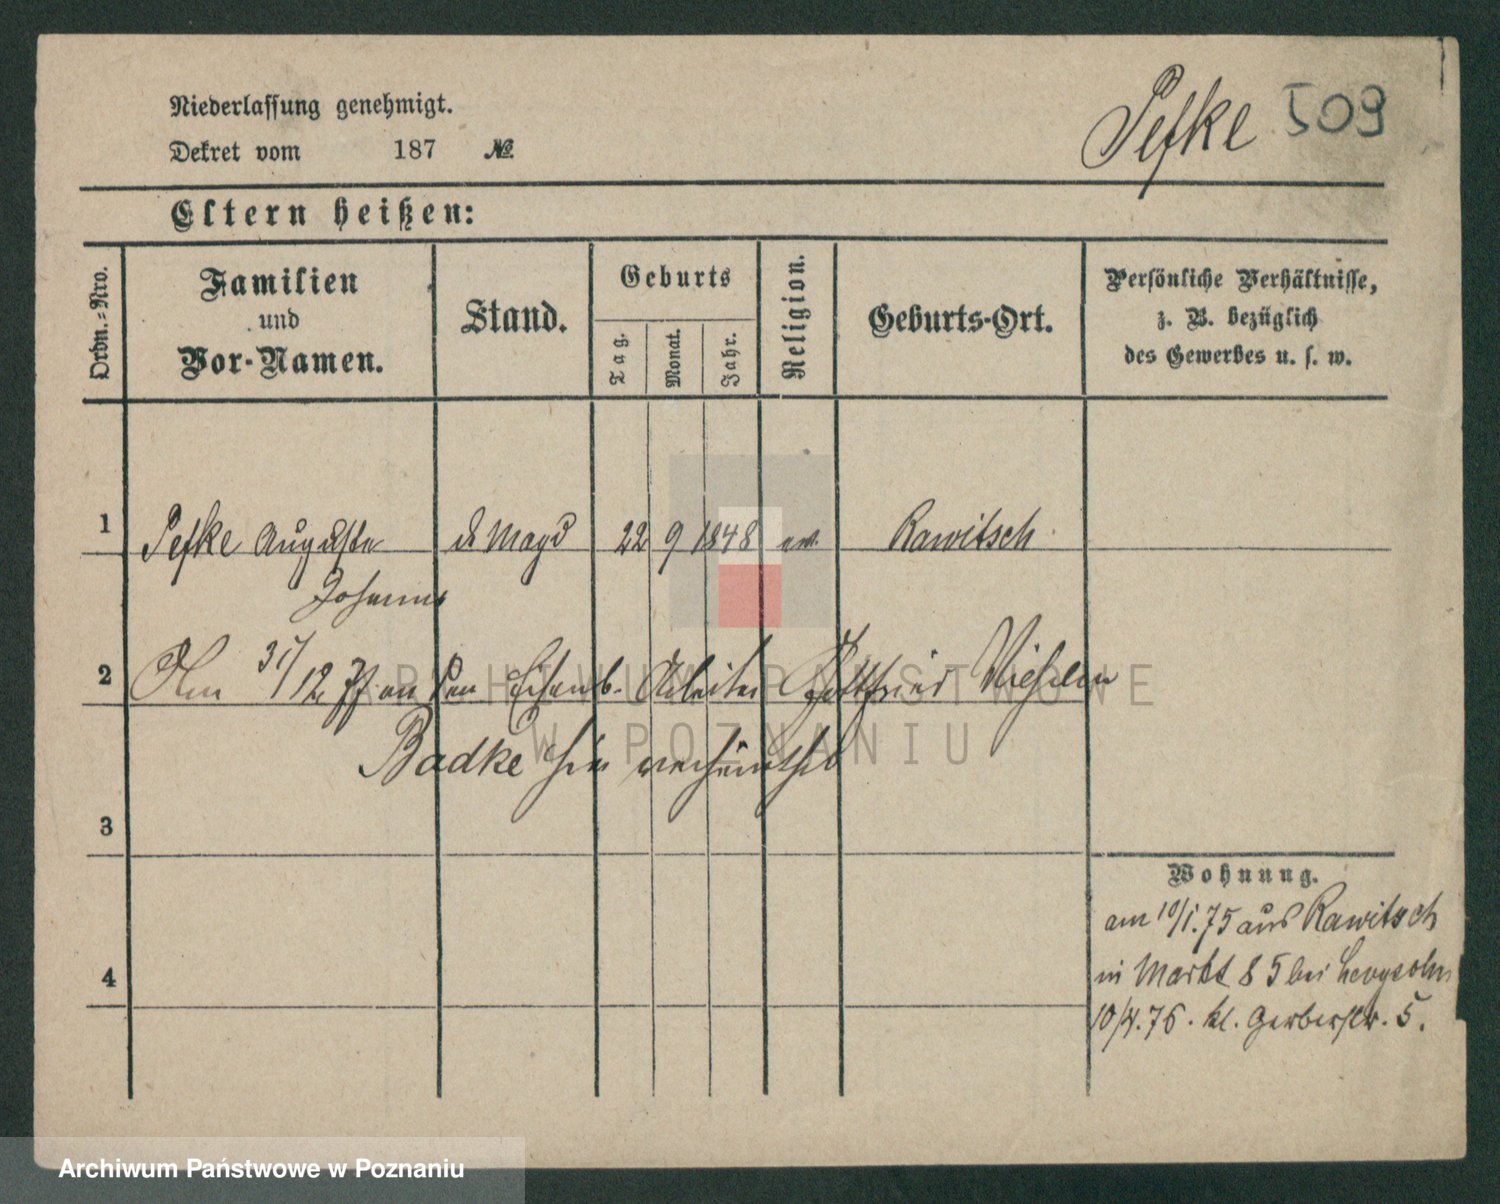 Niederlassung genehmigt.
Dekret vom 187 №
Pefke 509
Eltern heißen:
Ordn.-Nro.
Familien
und
Vor-Namen.
Stand.
Geburts
Tag.
Monat.
Jahr.
Religion.
Geburts-Ort.
Persönliche Verhältnisse,
z. B. bezüglich
des Gewerbes u. s. w.
1 Pefke Auguste d. Magd 22 9 1848 ev. Rawitsch
Johanna
2 Am 31/12 77 an den Eisenb. Arbeiter Gottfried Wilhelm
Badke hier verheirathet
3
4
Wohnung.
am 10/1.75 aus Rawitsch
in Markt 85 bei Levysohn
10/4.76. kl. Gerberstr. 5.
ARCHIWUM PAŃSTWOWE
W POZNANIU
Archiwum Państwowe w Poznaniu